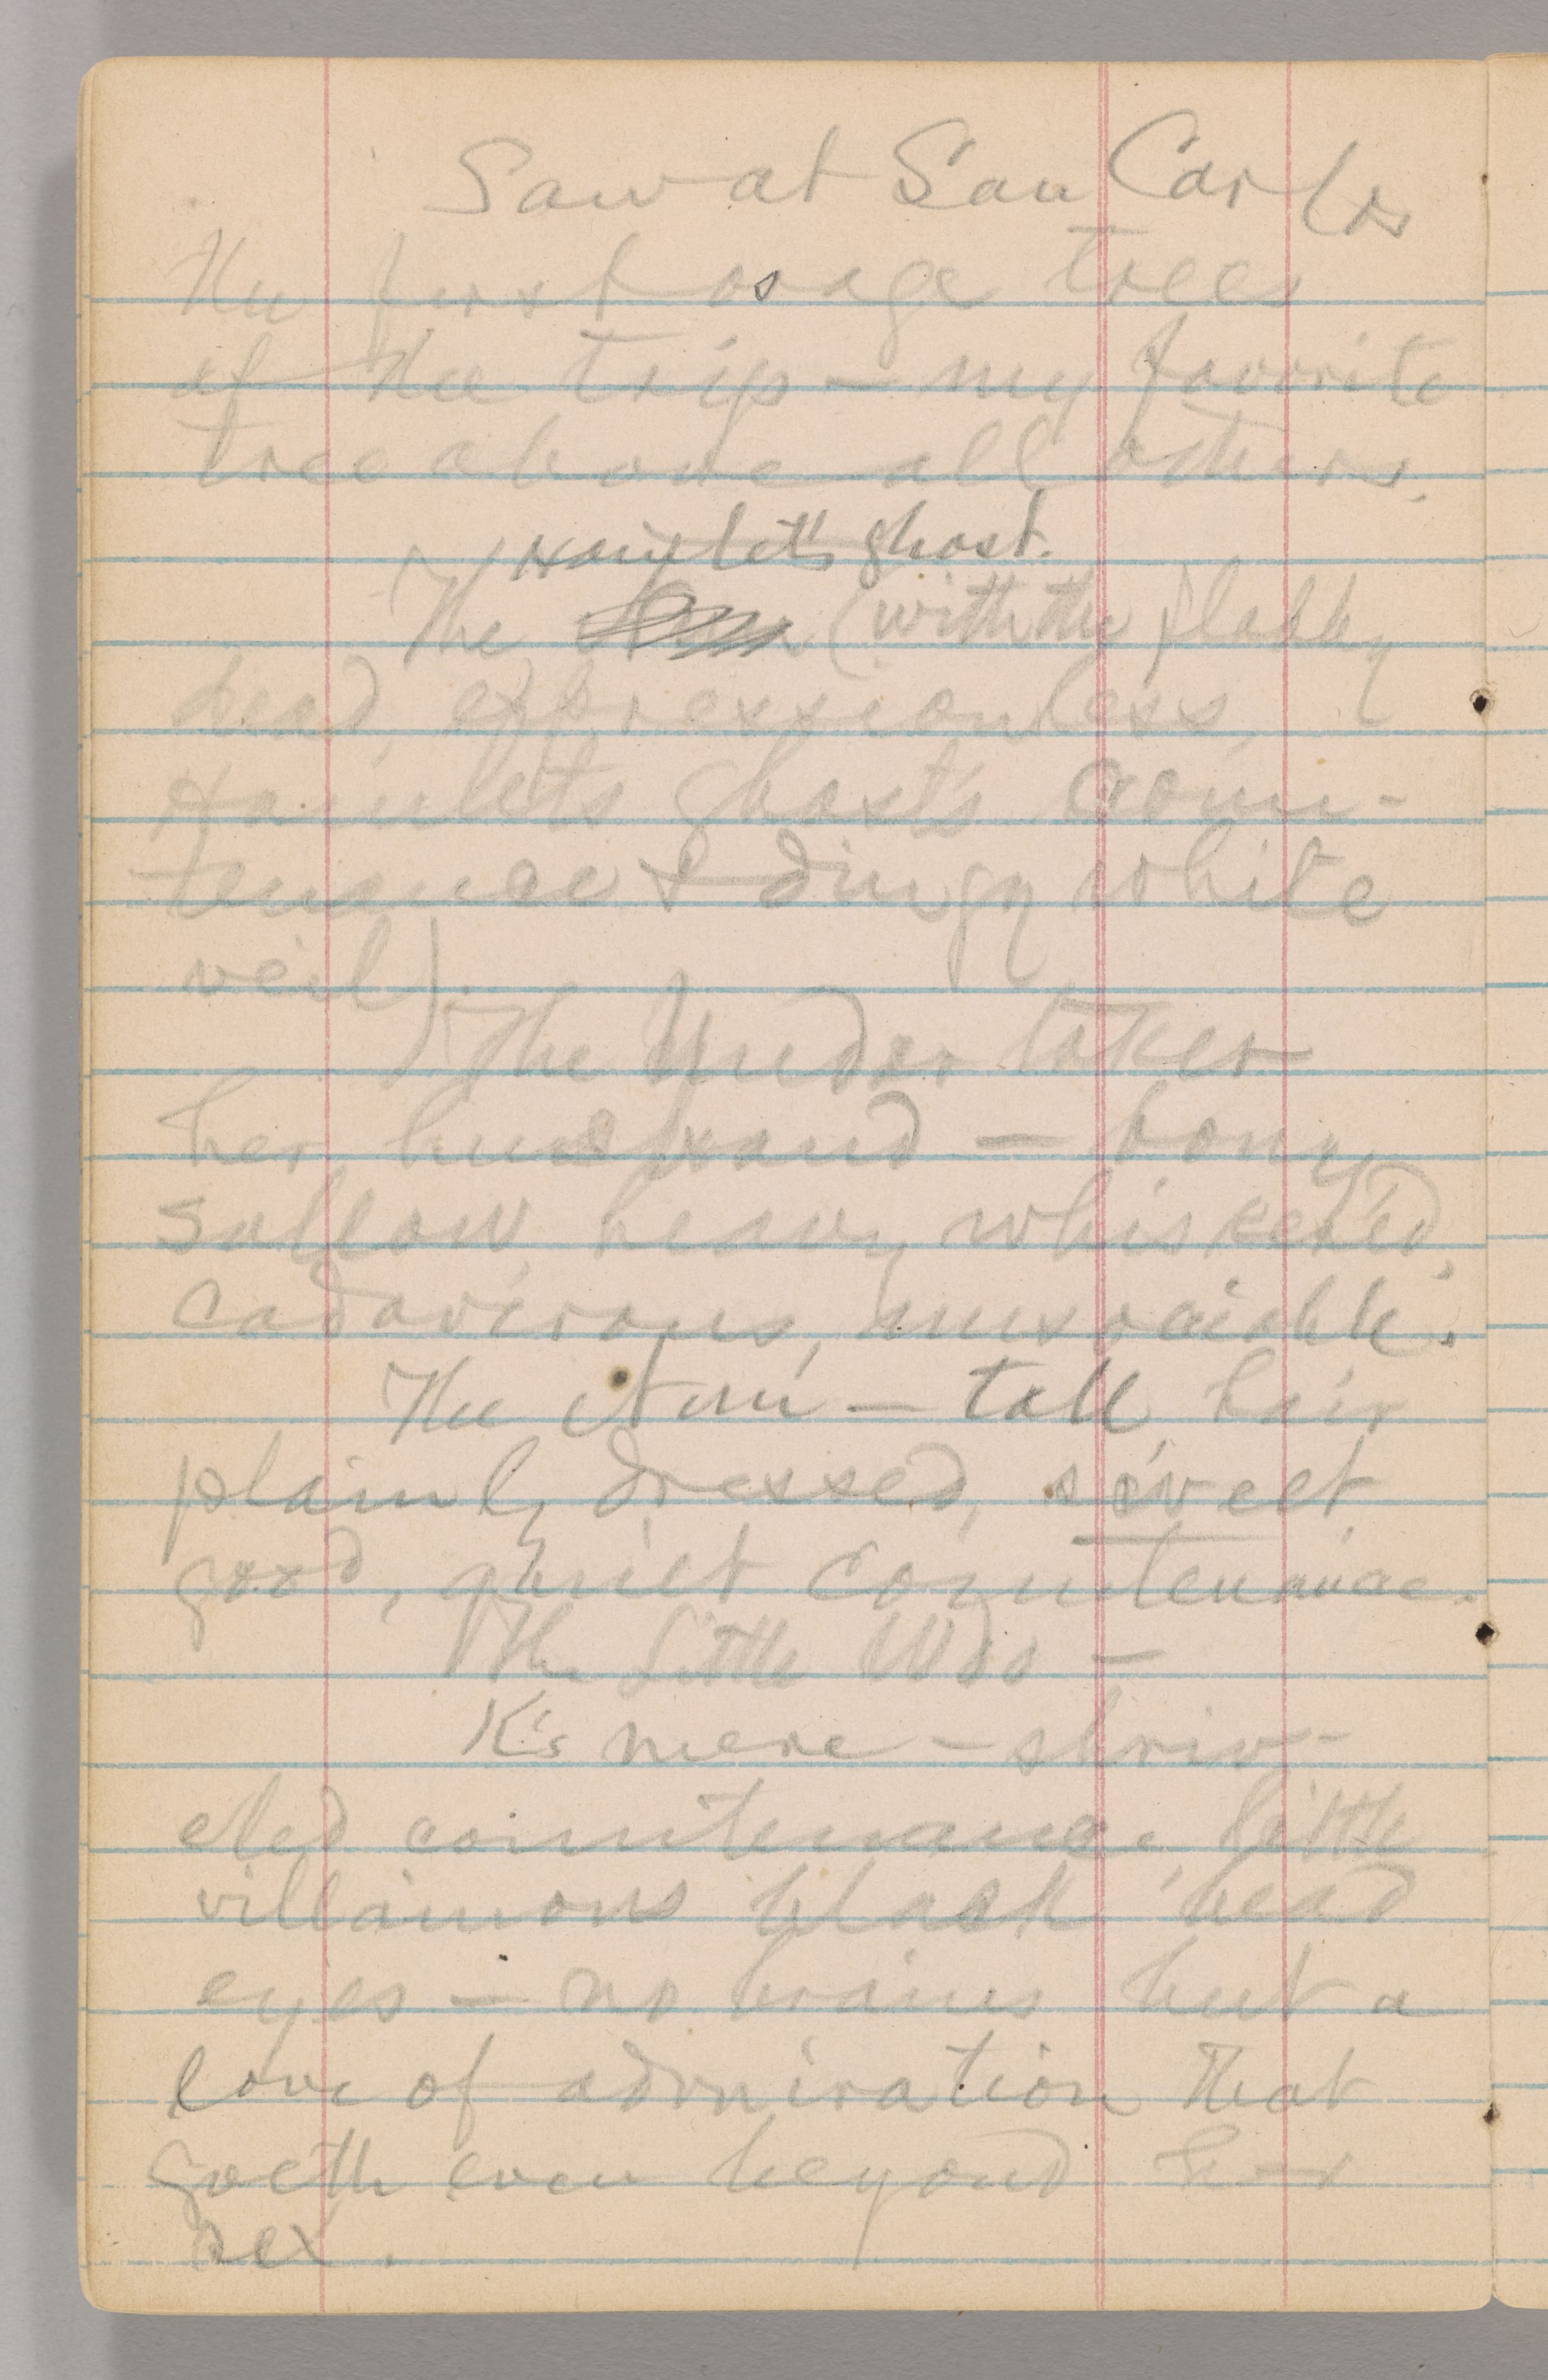 Saw at San Carlos
the first osage trees
of the trip — my favorite
tree above all others.
Hamlet's ghost.
The (with the flabby
dead, expressionless,
Hamlet's ghost's coun-
tenance & dingy white
veil).
The Undertaker
her husband — bony,
sallow, heavy whiskered,
cadaverous, unsociable.
The Nun — tall, fair
plainly dressed, sweet,
good, quiet countenance.
The Little Wdo —
K's mere — shriv-
eled countenance, little
villainous black bead
eyes — no brains but a
love of admiration that
goeth even beyond her
sex.